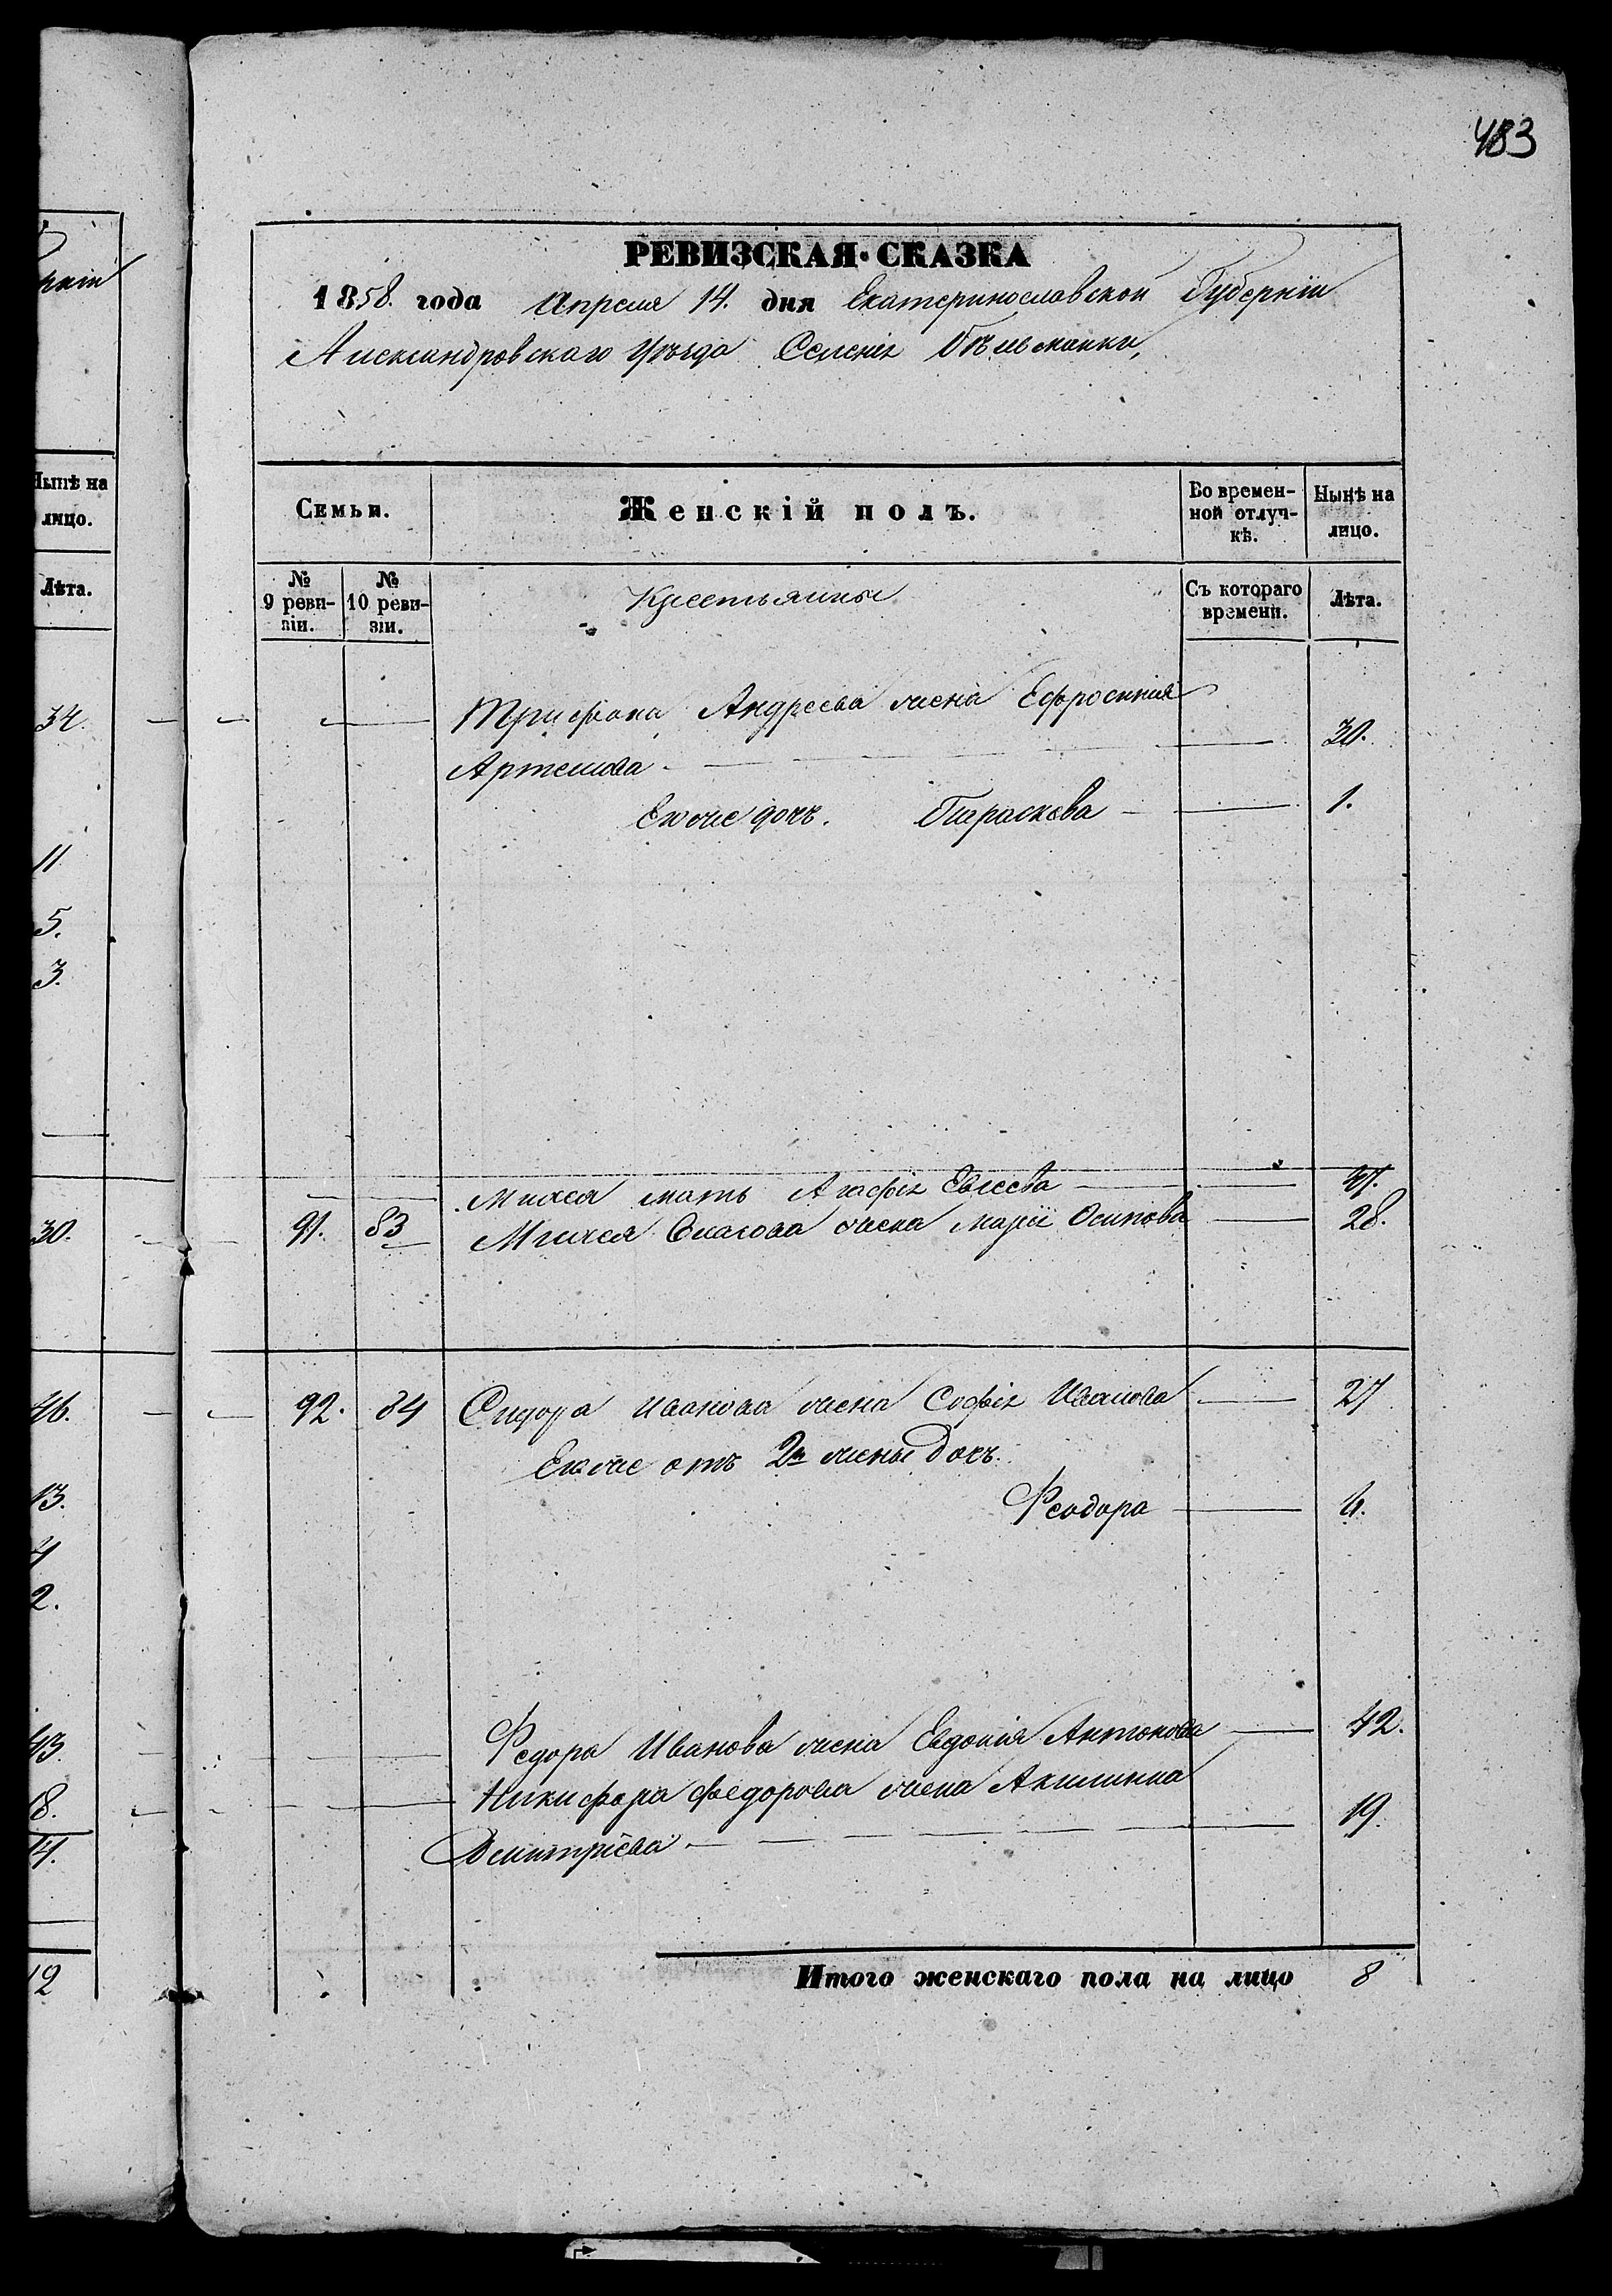 483
РЕВИЗСКАЯ СКАЗКА
1858. года Апреля 14. дня Екатеринославской Губернiи
Александровскаго Уѣзда Селенiя Бѣльманки,
Семьи.
Женскiй полъ.
Во времен-
ной отлуч-
кѣ.
Нынѣ на
лицо.
№
9 реви-
зiи.
№
10 реви-
зiи.
Крестьянны
Съ котораго
времени.
Лѣта.
Трифона Андреева жена Ефросинiя
Артемова 30.
Его же дочь. Параскева 1.
мать Агафiя 47.
91. 83 Власова жена Марiи Осипова 28.
92. 84 Сидора Иванова жена Софiя Иванова 27
Его же отъ 2й жены дочь.
Феодора 4.
Федора Иванова жена Евдокiя Антонова 42.
Никифора Федорова жена Акилина
Дмитрiева 19.
Итого женскаго пола на лицо 8
Нынѣ на
лицо.
Лѣта.
34.
11
5.
3.
30.
46.
13.
4
2.
43.
8.
14.
12